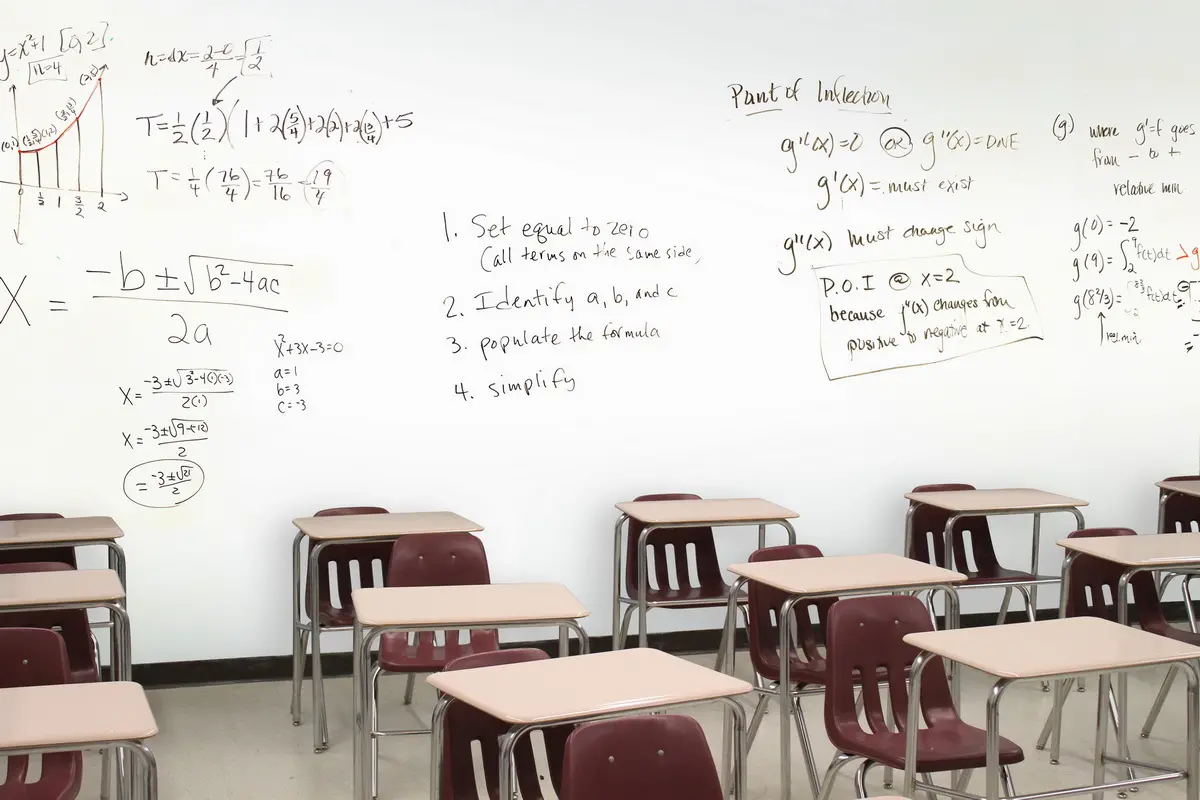 y=x²+1 [0,2].
n=4
n=dx=2-0/4=√1/2
T=1/2(1/2)(1+2(5/4)+2(2)+2(13/4)+5
T=1/4(76/4)=76/16=19/4
0 1/2 1 3/2 2
X = -b±√b²-4ac / 2a
x²+3x-3=0
a=1
b=3
c=-3
X= -3±√3²-4(1)(-3) / 2(1)
X= -3±√9+12 / 2
= -3±√21 / 2
1. Set equal to zero
(all terms on the same side,
2. Identify a, b, and c
3. populate the formula
4. simplify
Point of Inflection
g''(x)=0 OR g''(x)=DNE
g'(x)= must exist
g''(x) must change sign
P.O.I @ x=2
because g''(x) changes from
positive to negative at x=2.
(g) where g'=f goes
from - to +
relative min
g(0)=-2
g(9)=∫₂⁹f(t)dt
g(8²/3)= f(t)dt
rel min